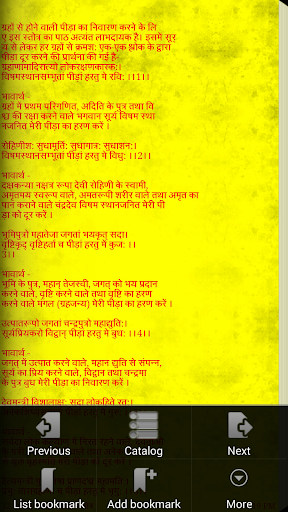 ग्रहों से होने वाली पीड़ा का निवारण करने के लि
ए इस स्तोत्र का पाठ अत्यंत लाभदायक है। इसमें सूर
य से लेकर हर ग्रहों से क्रमश: एक-एक श्लोक के द्वारा
पीड़ा दूर करने की प्रार्थना की गई है-
ग्रहाणामादिरात्यो लोकरक्षणकारक:।
विषमस्थानसम्भूतां पीड़ां हरतु मे रवि: ।।1।।
भावार्थ -
ग्रहों में प्रथम परिगणित, अदिति के पुत्र तथा वि
श्व की रक्षा करने वाले भगवान सूर्य विषम स्था
नजनित मेरी पीड़ा का हरण करें ।
रोहिणीश: सुधामूर्ति: सुधागात्र: सुधाशन:।
विषमस्थानसम्भूतां पीड़ां हरतु मे विधु: ।।2।।
भावार्थ -
दक्षकन्या नक्षत्र रूपा देवी रोहिणी के स्वामी,
अमृतमय स्वरूप वाले, अमतरूपी शरीर वाले तथा अमृत का
पान कराने वाले चंद्रदेव विषम स्थानजनित मेरी पी
ड़ा को दूर करें ।
भूमिपुत्रो महातेजा जगतां भयकृत् सदा।
वृष्टिकृद् वृष्टिहर्ता च पीड़ां हरतु मे कुज: ।।
3।।
भावार्थ -
भूमि के पुत्र, महान् तेजस्वी, जगत् को भय प्रदान
करने वाले, वृष्टि करने वाले तथा वृष्टि का हरण
करने वाले मंगल (ग्रहजन्य) मेरी पीड़ा का हरण करें ।
उत्पातरूपो जगतां चन्द्रपुत्रो महाद्युति:।
सूर्यप्रियकरो विद्वान् पीड़ां हरतु मे बुध: ।।4।।
भावार्थ -
जगत् में उत्पात करने वाले, महान द्युति से संपन्न,
सूर्य का प्रिय करने वाले, विद्वान तथा चन्द्रमा
के पुत्र बुध मेरी पीड़ा का निवारण करें ।
देवमन्त्री विशालाक्ष: सदा लोकहिते रत:।
Previous Catalog Next
List bookmark Add bookmark More